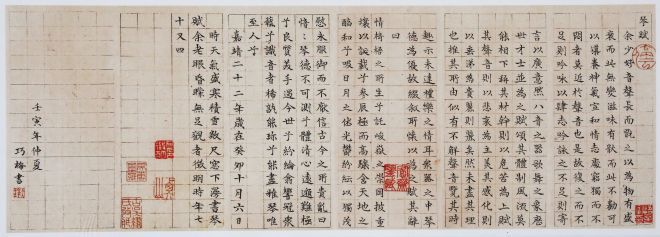 琴賦
余少好音聲長而翫之以為物有盛
衰而此無變滋味有猒而此不勌可
以導養神氣宣和情志處窮獨而不
悶者莫近於音聲也是故復之而不
足則吟咏以肆志吟詠之不足則寄
言以廣意然八音之器歌舞之象歷
世才士並為之賦頌其體制風流莫
能相下稱其材幹則以危苦為上賦
其聲音則以悲哀為主美其感化則
以垂涕為貴麗則麗矣然未盡其理
也推其所由似有不解聲音覽其時
趣亦未達禮樂之情耳衆器之中琴
德為優故綴叙所懷以為之賦其辭
曰
惟椅梧之所生兮託峻嶽之崇岡披重
壤以誕載兮參辰極而高驤含天地之
醇和兮吸日月之休光鬱紛紜以獨茂
慰永服御而不厭信古今之所貴亂曰
愔愔琴德不可測兮體清心遠邈難極
兮良質美手遇今世兮紛綸翕響冠衆
藝兮識音者稀孰能珍兮能盡雅琴唯
至人兮
嘉靖二十二年歲在癸卯十月六日
時天氣盛寒積雪窓下為書琴
賦余老眼昏眵無足觀者徵明時年七
十又四
壬寅年仲夏
巧梅書